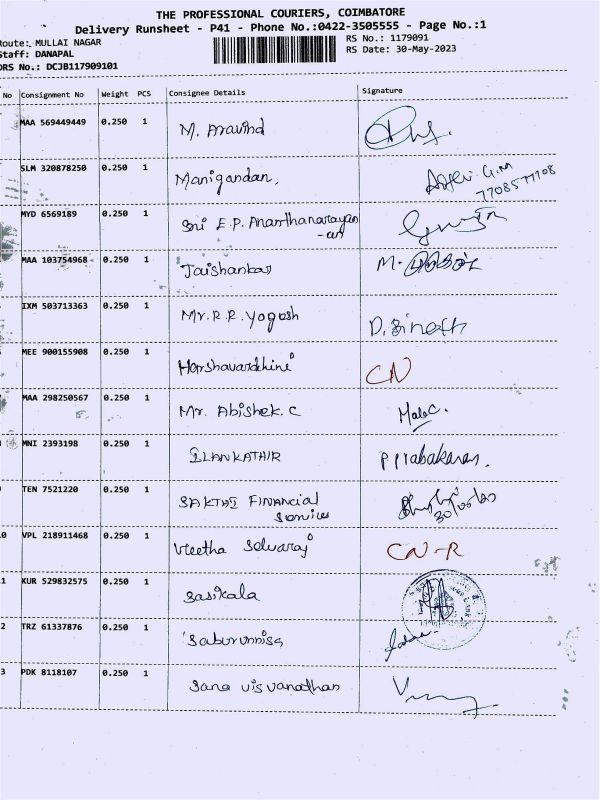 THE PROFESSIONAL COURIERS, COIMBATORE
Delivery Runsheet - P41 - Phone No.:0422-3505555 - Page No.:1
Route: MULLAI NAGAR RS No.: 1179091
Staff: DANAPAL RS Date: 30-May-2023
DRS No.: DCJB117909101
No Consignment No Weight PCS Consignee Details Signature
MAA 569449449 0.250 1 M. Aravind
SLM 320878250 0.250 1 Manigandan,
7708577108
MYD 6569189 0.250 1 Sri E.P. Ananthanarayan
-an
MAA 103754968 0.250 1 Jaishankar M.
IXM 503713363 0.250 1 Mr. R.R. Yogesh D. Sineth
MEE 900155908 0.250 1 Harshavardhini CN
MAA 298250567 0.250 1 Mr. Abishek. C
MNI 2393198 0.250 1 ILANKATHIR P. Prabakaran.
9 TEN 7521220 0.250 1 SAKTHI FINANCIAL
Services
0 VPL 218911468 0.250 1 Selvaraj CN-R
1 KUR 529832575 0.250 1 Sasikala
2 TRZ 61337876 0.250 1 Saburunnisa
3 PDK 8118107 0.250 1 Sana visvanathan